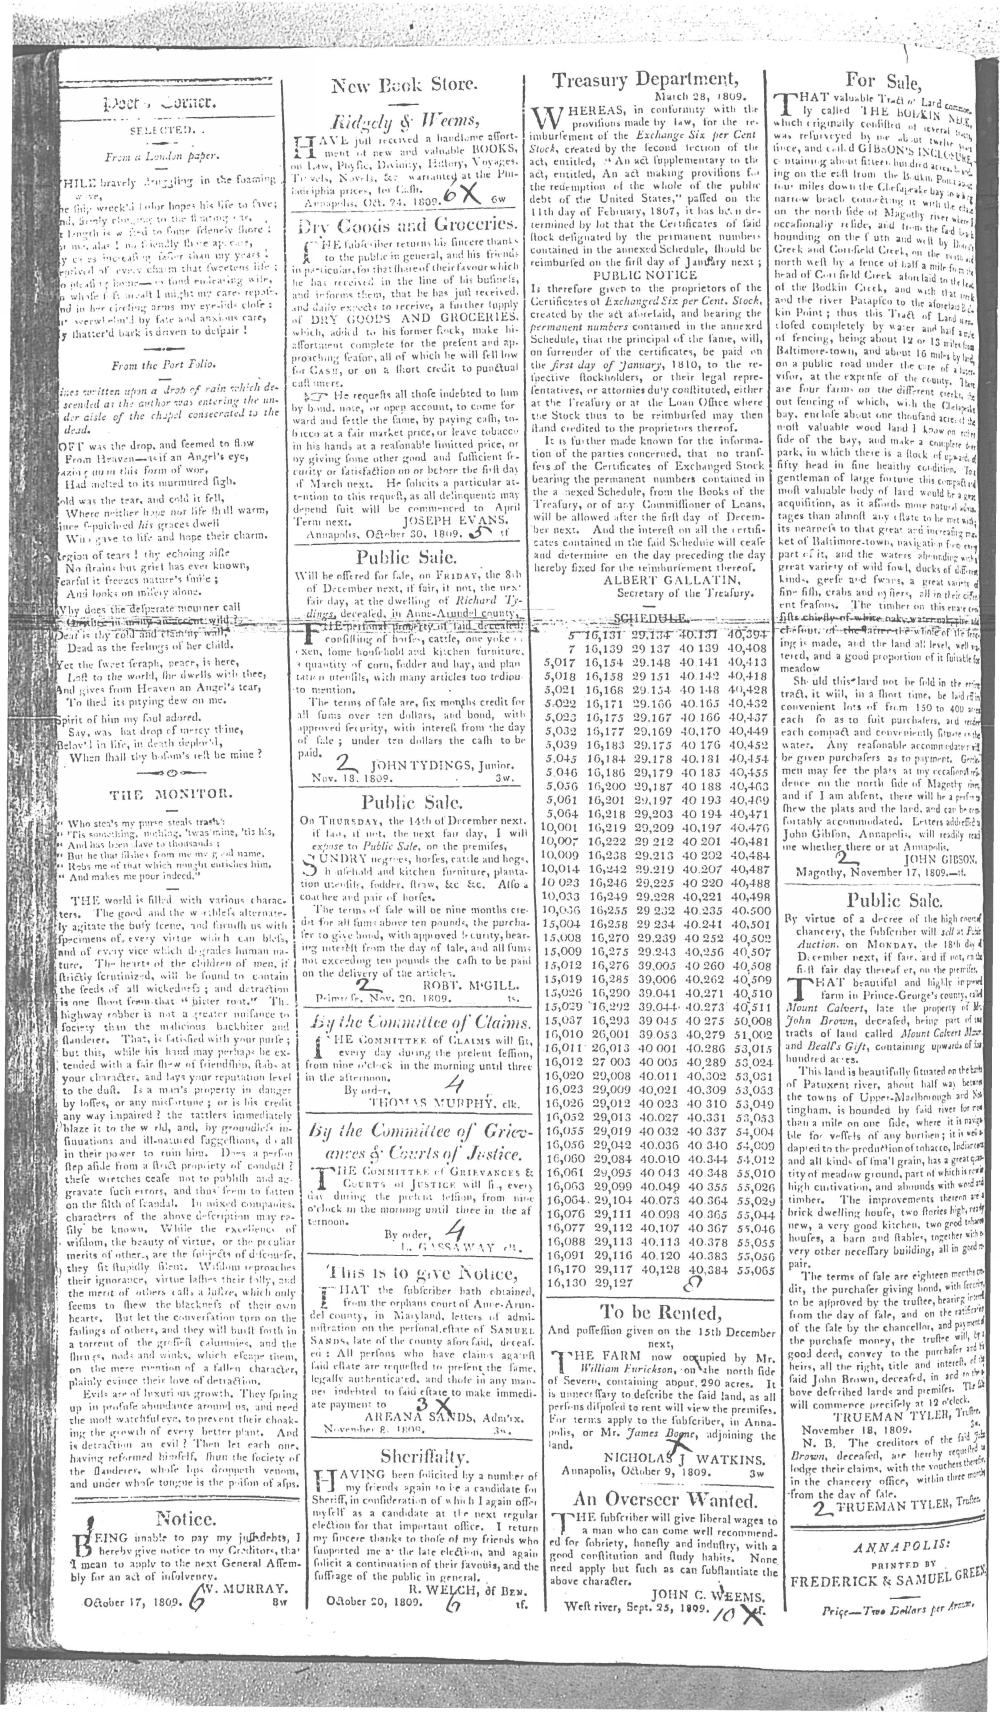 Poet's Corner.
SELECTED.
From a London paper.
WHILE bravely struggling in the foaming
wave,
The ship-wreck'd sailor hopes his life to save;
From the Port Folio.
Lines written upon a drop of rain which de-
scended as the author was entering the un-
der aisle of the chapel consecrated to the
dead.
SOFT was the drop, and seemed to flow
From Heaven—as if an Angel's eye,
Gazing upon this form of woe,
Had melted to its murmured sigh.
Cold was the tear, and cold it fell,
Where neither hope nor life shall warm,
Since sepulchred his graces dwell
Who gave to life and hope their charm.
Region of tears! thy echoing aisle
No strains but grief has ever known,
Fearful it freezes nature's smile;
And looks on misery alone.
Why does the desperate mourner call
Deaf is thy cold and clammy wall,
Dead as the feelings of her child.
Yet the sweet seraph, peace, is here,
Lost to the world, she dwells with thee,
And gives from Heaven an Angel's tear,
To shed its pitying dew on me.
Spirit of him my soul adored.
Say, was that drop of mercy thine,
Belov'd in life, in death deplor'd,
When shall thy bosom's rest be mine?
THE MONITOR.
" Who steals my purse steals trash:
" 'Tis something, nothing, 'twas mine, 'tis his,
" And has been slave to thousands;
" But he that filches from me my good name,
" Robs me of that which nought enriches him,
" And makes me poor indeed."
THE world is filled with various charac-
ters. The good and the worthless alternate-
ly agitate the busy scene, and furnish us with
specimens of every virtue which can bless,
and of every vice which degrades human na-
ture. The hearts of the children of men, if
strictly scrutinized, will be found to contain
the seeds of all wickedness; and detraction
is one shoot from that "bitter root." The
highway robber is not a greater nuisance to
society than the malicious backbiter and
slanderer. That, is satisfied with your purse;
but this, while his hand may perhaps be ex-
tended with a fair shew of friendship, stabs at
your character, and lays your reputation level
to the dust. Is a man's property in danger
by losses, or any misfortune; or is his credit
any way impaired? the tattlers immediately
blaze it to the world, and, by groundless in-
sinuations and ill-natured suggestions, do all
in their power to ruin him. Does a person
step aside from a strict propriety of conduct?
these wretches cease not to publish and ag-
gravate such errors, and thus seem to fatten
on the filth of scandal. In mixed companies,
characters of the above description may ea-
sily be known. While the excellence of
wisdom, the beauty of virtue, or the peculiar
merits of others, are the subjects of discourse,
they sit stupidly silent. Wisdom reproaches
their ignorance, virtue lashes their folly, and
the merit of others casts a lustre, which only
seems to shew the blackness of their own
hearts. But let the conversation turn on the
failings of others, and they will burst forth in
a torrent of the grossest calumnies, and the
shrugs, nods and winks, which escape them,
on the mere mention of a fallen character,
plainly evince their love of detraction.
Evils are of luxurious growth. They spring
up in profuse abundance around us, and need
the most watchful eye, to prevent their choak-
ing the growth of every better plant. And
is detraction an evil? Then let each one,
having reformed himself, shun the society of
the slanderer, whose lips droppeth venom,
and under whose tongue is the poison of asps.
Notice.
BEING unable to pay my just debts, I
hereby give notice to my Creditors, that
I mean to apply to the next General Assem-
bly for an act of insolvency.
W. MURRAY.
October 17, 1809. 6 8w
New Book Store.
Ridgely & Weems,
HAVE just received a handsome assort-
ment of new and valuable BOOKS,
on Law, Physic, Divinity, History, Voyages,
Travels, Novels, &c. warranted at the Phi-
ladelphia prices, for Cash.
Annapolis, Oct. 24, 1809. 6X 6w
Dry Goods and Groceries.
THE subscriber returns his sincere thanks
to the public in general, and his friends
in particular, for that share of their favour which
he has received in the line of his business,
and informs them, that he has just received,
and daily expects to receive, a further supply
of DRY GOODS AND GROCERIES,
which, added to his former stock, make his
assortment complete for the present and ap-
proaching season, all of which he will sell low
for CASH, or on a short credit to punctual
customers.
He requests all those indebted to him
by bond, note, or open account, to come for-
ward and settle the same, by paying cash, to-
bacco at a fair market price, or leave tobacco
in his hand, at a reasonable limitted price, or
by giving some other good and sufficient se-
curity or satisfaction on or before the first day
of March next. He solicits a particular at-
tention to this request, as all delinquents may
depend suit will be commenced to April
Term next. JOSEPH EVANS.
Annapolis, October 30, 1809. 5 tf
Public Sale.
Will be offered for sale, on FRIDAY, the 8th
of December next, if fair, if not, the next
fair day, at the dwelling of Richard Ty-
dings, deceased, in Anne-Arundel county,
THE personal property of said deceased;
consisting of horses, cattle, one yoke of
oxen, some household and kitchen furniture,
a quantity of corn, fodder and hay, and plan-
tation utensils, with many articles too tedious
to mention.
The terms of sale are, six months credit for
all sums over ten dollars, and bond, with
approved security, with interest from the day
of sale; under ten dollars the cash to be
paid.
2 JOHN TYDINGS, Junior.
Nov. 18, 1809. 3w.
Public Sale.
On THURSDAY, the 14th of December next,
if fair, if not, the next fair day, I will
expose to Public Sale, on the premises,
SUNDRY negroes, horses, cattle and hogs,
household and kitchen furniture, planta-
tion utensils, fodder, straw, &c. &c. Also a
coachee and pair of horses.
The terms of sale will be nine months cre-
dit for all sums above ten pounds, the purcha-
ser to give bond, with approved security, bear-
ing interest from the day of sale, and all sums
not exceeding ten pounds the cash to be paid
on the delivery of the articles.
2 ROBT. M'GILL.
Primrose, Nov. 20, 1809. ts.
By the Committee of Claims.
THE COMMITTEE OF CLAIMS will sit,
every day during the present session,
from nine o'clock in the morning until three
in the afternoon.
By order, 4
THOMAS MURPHY, clk.
By the Committee of Griev-
ances & Courts of Justice.
THE COMMITTEE of GRIEVANCES &
COURTS of JUSTICE will sit, every
day during the present session, from nine
o'clock in the morning until three in the af-
ternoon.
By order, 4
L. GASSAWAY clk.
This is to give Notice,
THAT the subscriber hath obtained,
from the orphans court of Anne-Arun-
del county, in Maryland, letters of admi-
nistration on the personal estate of SAMUEL
SANDS, late of the county aforesaid, deceas-
ed: All persons who have claims against
said estate are requested to present the same,
legally authenticated, and those in any man-
ner indebted to said estate to make immedi-
ate payment to 3 X
AREANA SANDS, Adm'x.
November 8, 1809. 3w.
Sheriffalty.
HAVING been solicited by a number of
my friends again to be a candidate for
Sheriff, in consideration of which I again offer
myself as a candidate at the next regular
election for that important office. I return
my sincere thanks to those of my friends who
supported me at the late election, and again
solicit a continuation of their favours, and the
suffrage of the public in general.
R. WELCH, of BEN.
October 20, 1809. 6 tf.
Treasury Department,
March 28, 1809.
WHEREAS, in conformity with the
provisions made by law, for the re-
imbursement of the Exchange Six per Cent
Stock, created by the second section of the
act, entitled, "An act supplementary to the
act, entitled, An act making provisions for
the redemption of the whole of the public
debt of the United States," passed on the
11th day of February, 1807, it has been de-
termined by lot that the Certificates of said
stock designated by the permanent numbers
contained in the annexed Schedule, should be
reimbursed on the first day of January next;
PUBLIC NOTICE
Is therefore given to the proprietors of the
Certificates of Exchanged Six per Cent. Stock,
created by the act aforesaid, and bearing the
permanent numbers contained in the annexed
Schedule, that the principal of the same, will,
on surrender of the certificates, be paid on
the first day of January, 1810, to the re-
spective stockholders, or their legal repre-
sentatives, or attornies duly constituted, either
at the Treasury or at the Loan Office where
the Stock thus to be reimbursed may then
stand credited to the proprietors thereof.
It is further made known for the informa-
tion of the parties concerned, that no trans-
fers of the Certificates of Exchanged Stock
bearing the permanent numbers contained in
the annexed Schedule, from the Books of the
Treasury, or of any Commissioner of Loans,
will be allowed after the first day of Decem-
ber next. And the interest on all the certifi-
cates contained in the said Schedule will cease
and determine on the day preceding the day
hereby fixed for the reimbursement thereof.
ALBERT GALLATIN,
Secretary of the Treasury.
SCHEDULE.
5 16,131 29.134 40.131 40,394
7 16,139 29 137 40 139 40,408
5,017 16,154 29.148 40.141 40,413
5,018 16,158 29 151 40.142 40,418
5,021 16,168 29.154 40 148 40,428
5.022 16,171 29.166 40.165 40,432
5,023 16,175 29.167 40.166 40,437
5,032 16,177 29.169 40,170 40,449
5,039 16,183 29.175 40 176 40,452
5.045 16,184 29.178 40.181 40,454
5 046 16,186 29,179 40 185 40,455
5.056 16,200 29,187 40 188 40,463
5,061 16,201 29.197 40 193 40,469
5,064 16,218 29,203 40 194 40,471
10,001 16,219 29,209 40,197 40.476
10,007 16,222 29 212 40 201 40,481
10.009 16,238 29.213 40 202 40,484
10,014 16,242 29.219 40.207 40,487
10 023 16,246 29,225 40 220 40,488
10,033 16,249 29.228 40,221 40,498
10,036 16,255 29 232 40.235 40.500
15,004 16,258 29 234 40.241 40,501
15,008 16,270 29.239 40 252 40,502
15,009 16,275 29.243 40,256 40,507
15,012 16,276 39,005 40 260 40,508
15,019 16,285 39,006 40.262 40,509
15,026 16,290 39,041 40.271 40,510
15,029 16,292 39.044 40.273 40,511
15,037 16,293 39 045 40 275 50,008
16,010 26,001 39.053 40,279 51,002
16,011 26,013 40 001 40.286 53,015
16,012 27 003 40 005 40,289 53,024
16,020 29,008 40.011 40,302 53,031
16,023 29,009 40,021 40,309 53,033
16,026 29,012 40 023 40 310 53,049
16,052 29,013 40,027 40.331 53,053
16,055 29,019 40 032 40 337 54,004
16,056 29,042 40.036 40 340 54,009
16,060 29,084 40.010 40.344 54,012
16,061 29,095 40 043 40 348 55,010
16,063 29,099 40.049 40 355 55,026
16,064 29,104 40.073 40.364 55,029
16,076 29,111 40 098 40.365 55,044
16,077 29,112 40.107 40 367 55,046
16,088 29,113 40.113 40.378 55,055
16,091 29,116 40.120 40.383 55,056
16,170 29,117 40,128 40,384 55,065
16,130 29,127
To be Rented,
And possession given on the 15th December
next,
THE FARM now occupied by Mr.
William Furickson, on the north side
of Severn, containing about 290 acres. It
is unnecessary to describe the said land, as all
persons disposed to rent will view the premises.
For terms apply to the subscriber, in Anna-
polis, or Mr. James Boone, adjoining the
land.
NICHOLAS J WATKINS.
Annapolis, October 9, 1809. 3w
An Overseer Wanted.
THE subscriber will give liberal wages to
a man who can come well recommend-
ed for sobriety, honesty and industry, with a
good constitution and study habits. None
need apply but such as can substantiate the
above character.
JOHN C. WEEMS.
West river, Sept. 25, 1809. 10 X tf.
For Sale,
THAT valuable Tract of Land common-
ly called THE BODKIN NECK,
which originally consisted of several tracts,
was resurveyed by me about twelve years
since, and called GIBSON'S INCLOSURE,
containing about fifteen hundred acres, ly-
ing on the east from the Bodkin Point about
four miles down the Chesapeake bay to a
narrow beach connecting it with the
on the north side of Magothy river where I
occasionally reside, and from the said beach
bounding on the south and west by
Creek and Cornfield Creek, on the
north west by a fence of half a mile from the
head of Cornfield Creek aforesaid to the head
of the Bodkin Creek, and with that creek
and the river Patapsco to the aforesaid Bod-
kin Point; thus this Tract of Land is en-
closed completely by water and half a mile
of fencing, being about 12 or 13 miles from
Baltimore-town, and about 16 miles by land,
on a public road under the care of a super-
visor, at the expense of the county. There
are four farms on the different creeks, with-
out fencing of which, with the Chesapeake
bay, enclose about one thousand acres of the
most valuable wood land I know on either
side of the bay, and make a complete deer
park, in which there is a stock of upwards of
fifty head in fine healthy condition. To a
gentleman of large fortune this compact and
most valuable body of land would be a great
acquisition, as it affords more natural advan-
tages than almost any estate to be met with;
its nearness to that great and increasing mar-
ket of Baltimore-town, navigation from every
part of it, and the waters abounding with a
great variety of wild fowl, ducks of different
kinds, geese and swans, a great variety of
fine fish, crabs and oysters, all in their differ-
ent seasons. The timber on this estate con-
sists chiefly of white oak,
chesnut, of the latter the whole of the fenc-
ing is made, and the land all level, well wa-
tered, and a good proportion of it suitable for
meadow
Should this land not be sold in the entire
tract, it will, in a short time, be laid off in
convenient lots of from 150 to 400 acres
each so as to suit purchasers, and render
each compact and conveniently situate on the
water. Any reasonable accommodation will
be given purchasers as to payment. Gentle-
men may see the plats at my occasional resi-
dence on the north side of Magothy river,
and if I am absent, there will be a person to
shew the plats and the land, and can be com-
fortably accommodated. Letters addressed to
John Gibson, Annapolis, will readily reach
me whether there or at Annapolis.
2 JOHN GIBSON.
Magothy, November 17, 1809.—tf.
Public Sale.
By virtue of a decree of the high court of
chancery, the subscriber will sell at Public
Auction, on MONDAY, the 18th day of
December next, if fair, and if not, on the
first fair day thereafter, on the premises,
THAT beautiful and highly improved
farm in Prince-George's county, called
Mount Calvert, late the property of Mr.
John Brown, deceased, being part of the
tracts of land called Mount Calvert Manor
and Beall's Gift, containing upwards of six
hundred acres.
This land is beautifully situated on the banks
of Patuxent river, about half way between
the towns of Upper-Marlborough and Not-
tingham, is bounded by said river for more
than a mile on one side, where it is naviga-
ble for vessels of any burthen; it is well a-
dapted to the production of tobacco, Indian corn
and all kinds of small grain, has a great quan-
tity of meadow ground, part of which is now in
high cultivation, and abounds with wood and
timber. The improvements thereon are a
brick dwelling house, two stories high, nearly
new, a very good kitchen, two good tobacco
houses, a barn and stables, together with e-
very other necessary building, all in good re-
pair.
The terms of sale are eighteen months cre-
dit, the purchaser giving bond, with security,
to be approved by the trustee, bearing interest
from the day of sale, and on the ratification
of the sale by the chancellor, and payment of
the purchase money, the trustee will, by a
good deed, convey to the purchaser and his
heirs, all the right, title and interest, of the
said John Brown, deceased, in and to the a-
bove described lands and premises. The sale
will commence precisely at 12 o'clock.
TRUEMAN TYLER, Trustee.
November 18, 1809.
N. B. The creditors of the said John
Brown, deceased, are hereby requested to
lodge their claims, with the vouchers thereof,
in the chancery office, within three months
from the day of sale.
2 TRUEMAN TYLER, Trustee.
ANNAPOLIS:
PRINTED BY
FREDERICK & SAMUEL GREEN.
Price—Two Dollars per Annum.